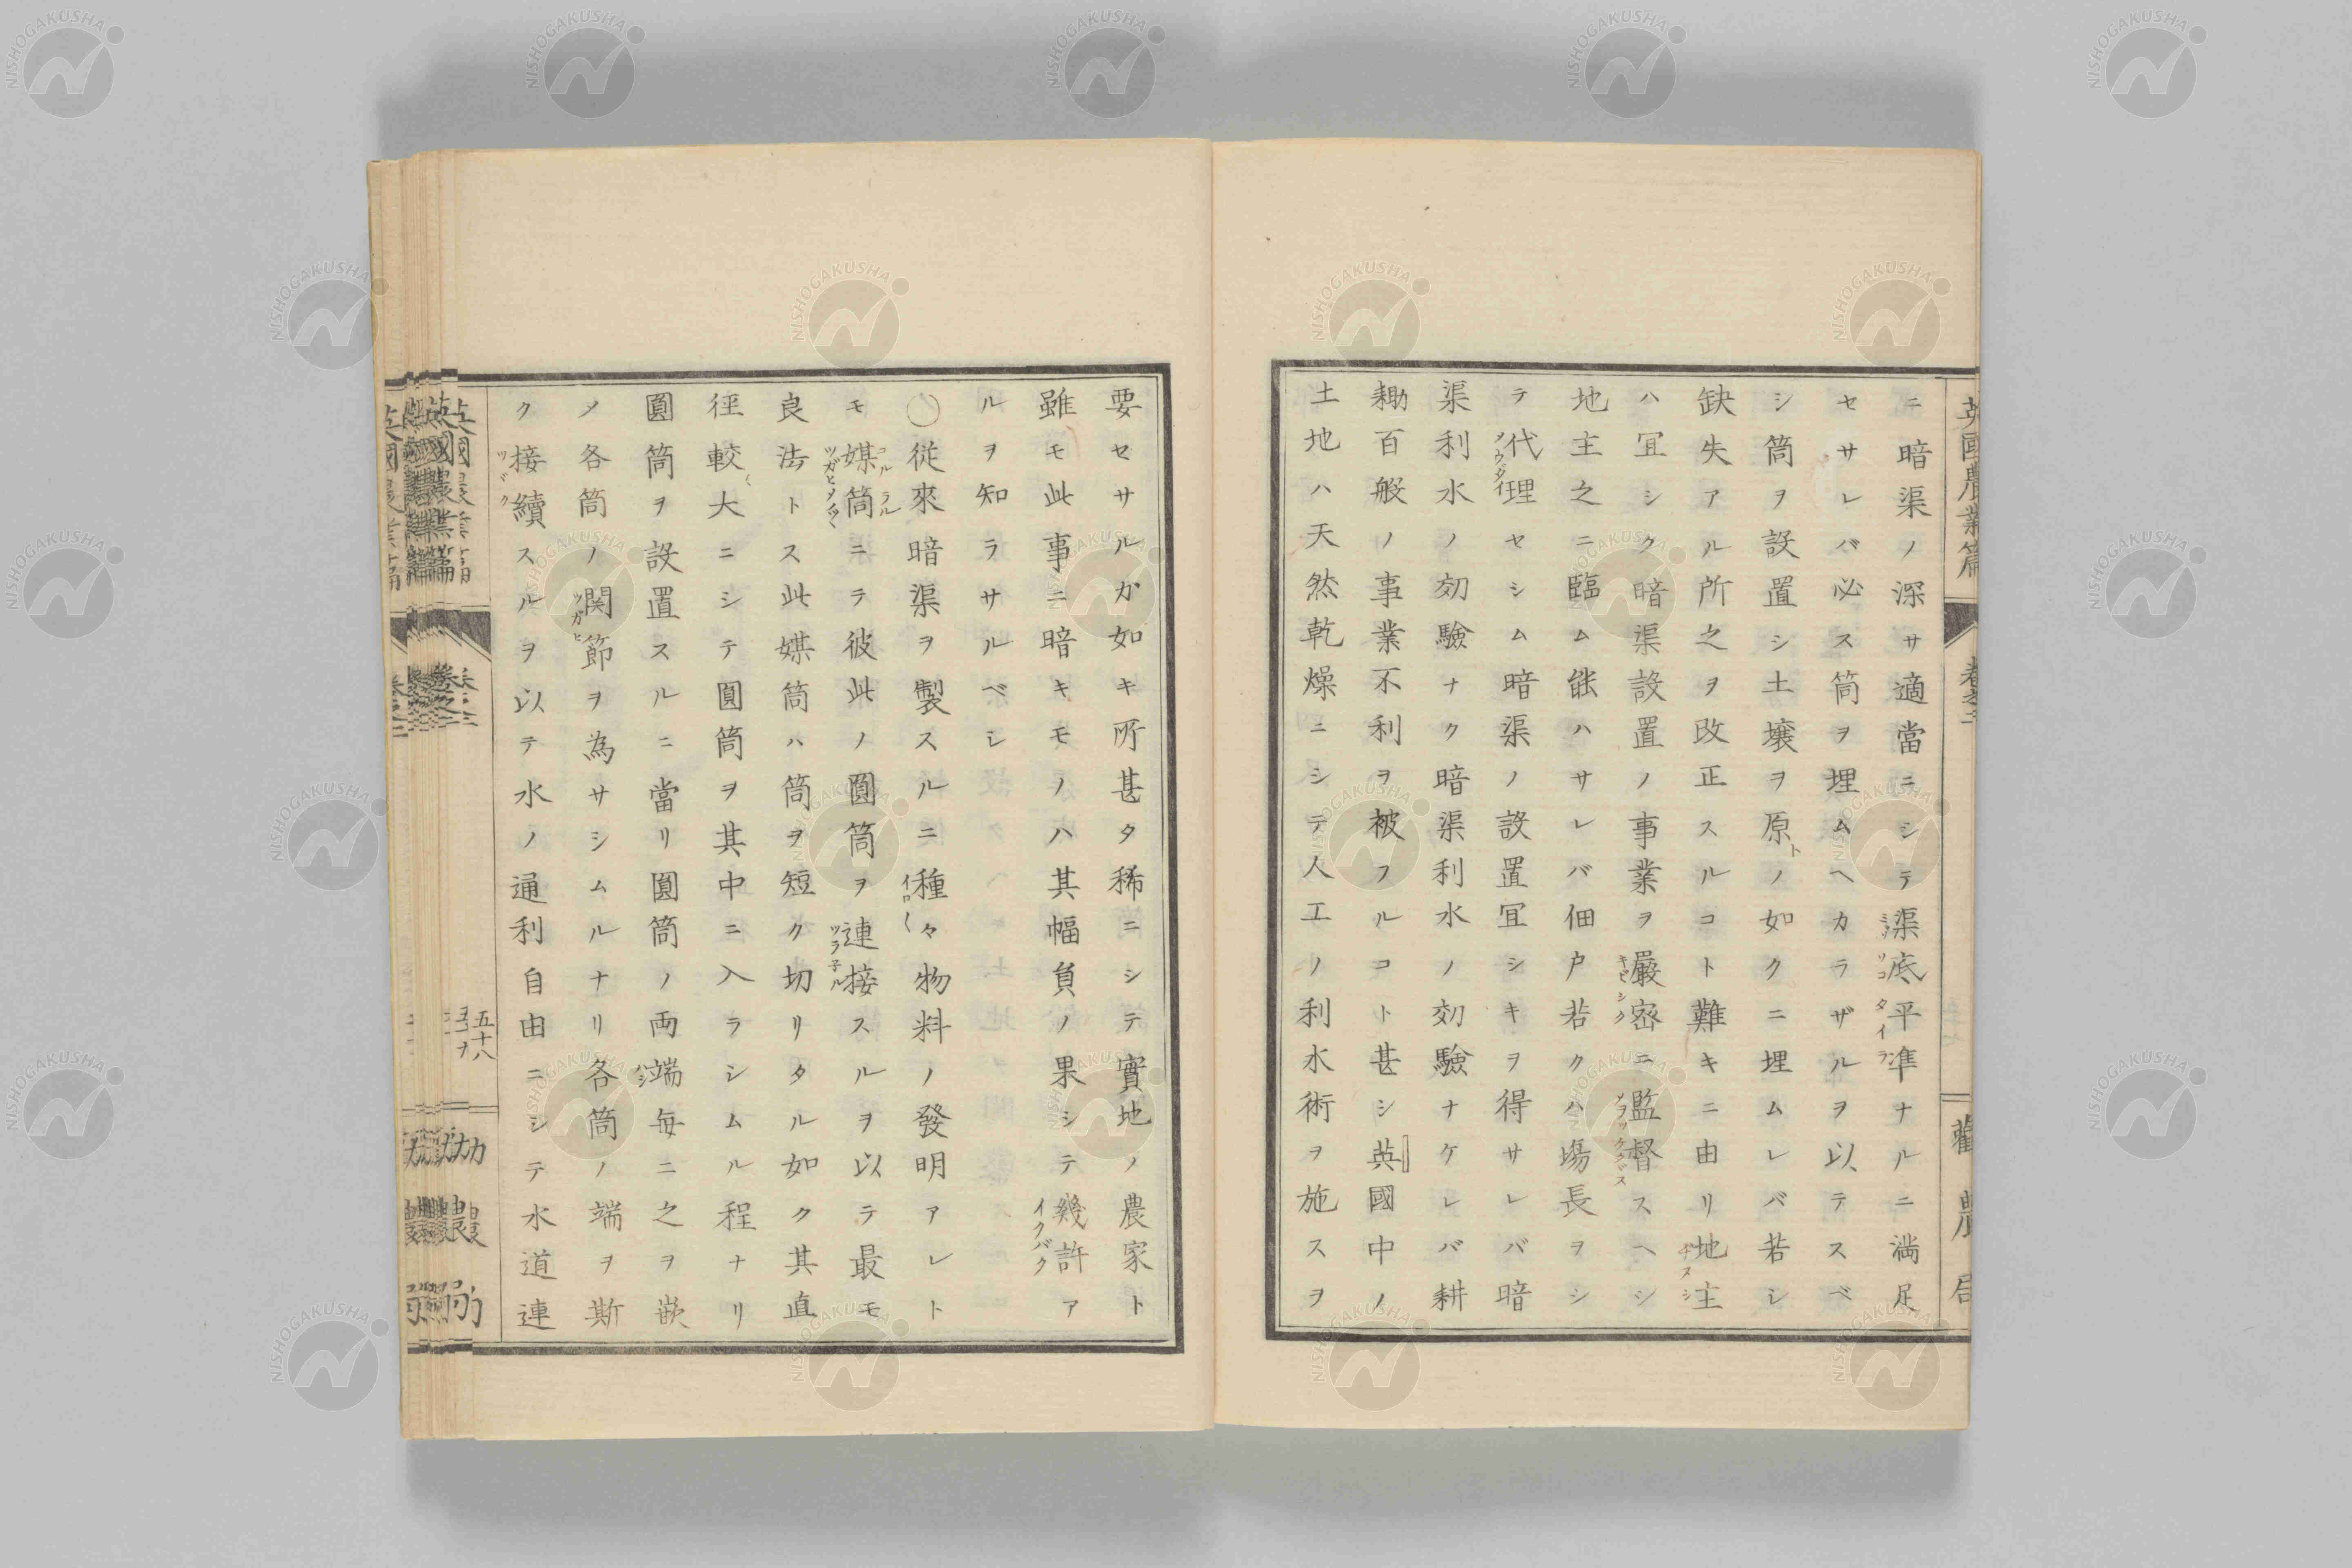 ニ暗渠ノ深サ適當ニシテ渠底平準ナルニ満足
セサレバ必ス筒ヲ埋ムヘカラザルヲ以テスベ
シ筒ヲ設置シ土壌ヲ原ノ如クニ埋ムレバ若シ
缺失アル所之ヲ改正スルコト難キニ由リ地主
ハ冝シク暗渠設置ノ事業ヲ嚴密ニ監督スヘシ
地主之ニ臨ム能ハサレバ佃戸若クハ塲長ヲシ
テ代理セシム暗渠ノ設置冝シキヲ得サレバ暗
渠利水ノ効驗ナク暗渠利水ノ効驗ナケレバ耕
耡百般ノ事業不利ヲ被フルコト甚シ英國中ノ
土地ハ天然乾燥ニシテ人工ノ利水術ヲ施スヲ
要セサルカ如キ所甚タ稀ニシテ實地ノ農家ト
雖モ此事ニ暗キモノハ其幅負ノ果シテ幾許ア
ルヲ知ラサルベシ
○従來暗渠ヲ製スルニ種々物料ノ發明アレト
モ媒筒ニテ彼此ノ圓筒ヲ連接スルヲ以テ最モ
良法トス此媒筒ハ筒ヲ短ク切リタル如ク其直
徑較大ニシテ圓筒ヲ其中ニ入ラシムル程ナリ
圓筒ヲ設置スルニ當リ圓筒ノ両端毎ニ之ヲ嵌
メ各筒ノ関節ヲ為サシムルナリ各筒ノ端ヲ斯
ク接續スルヲ以テ水ノ通利自由ニシテ水道連
五十八
NISHOGAKUSHA